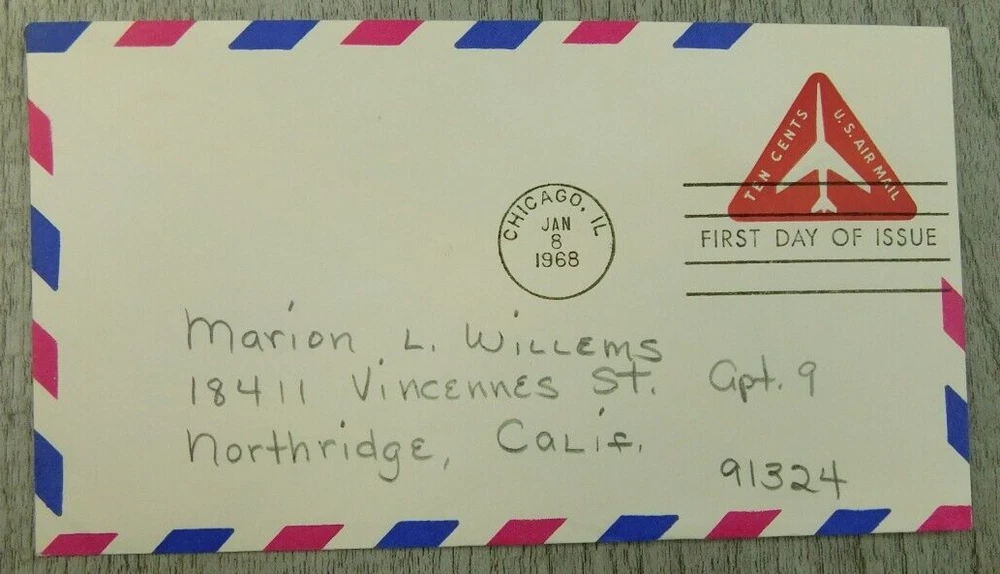 TEN CENTS
U.S. AIR MAIL
CHICAGO, IL
JAN
8
1968
FIRST DAY OF ISSUE
Marion L. Willems
18411 Vincennes St. Apt. 9
Northridge, Calif.
91324